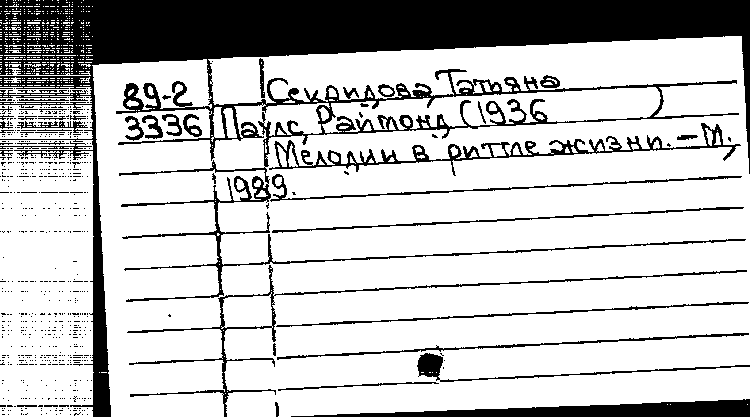 89-2 Секридова, Татьяна
3336 Паулс, Раймонд (1936 )
Мелодии в ритме жизни. – М.,
1989.